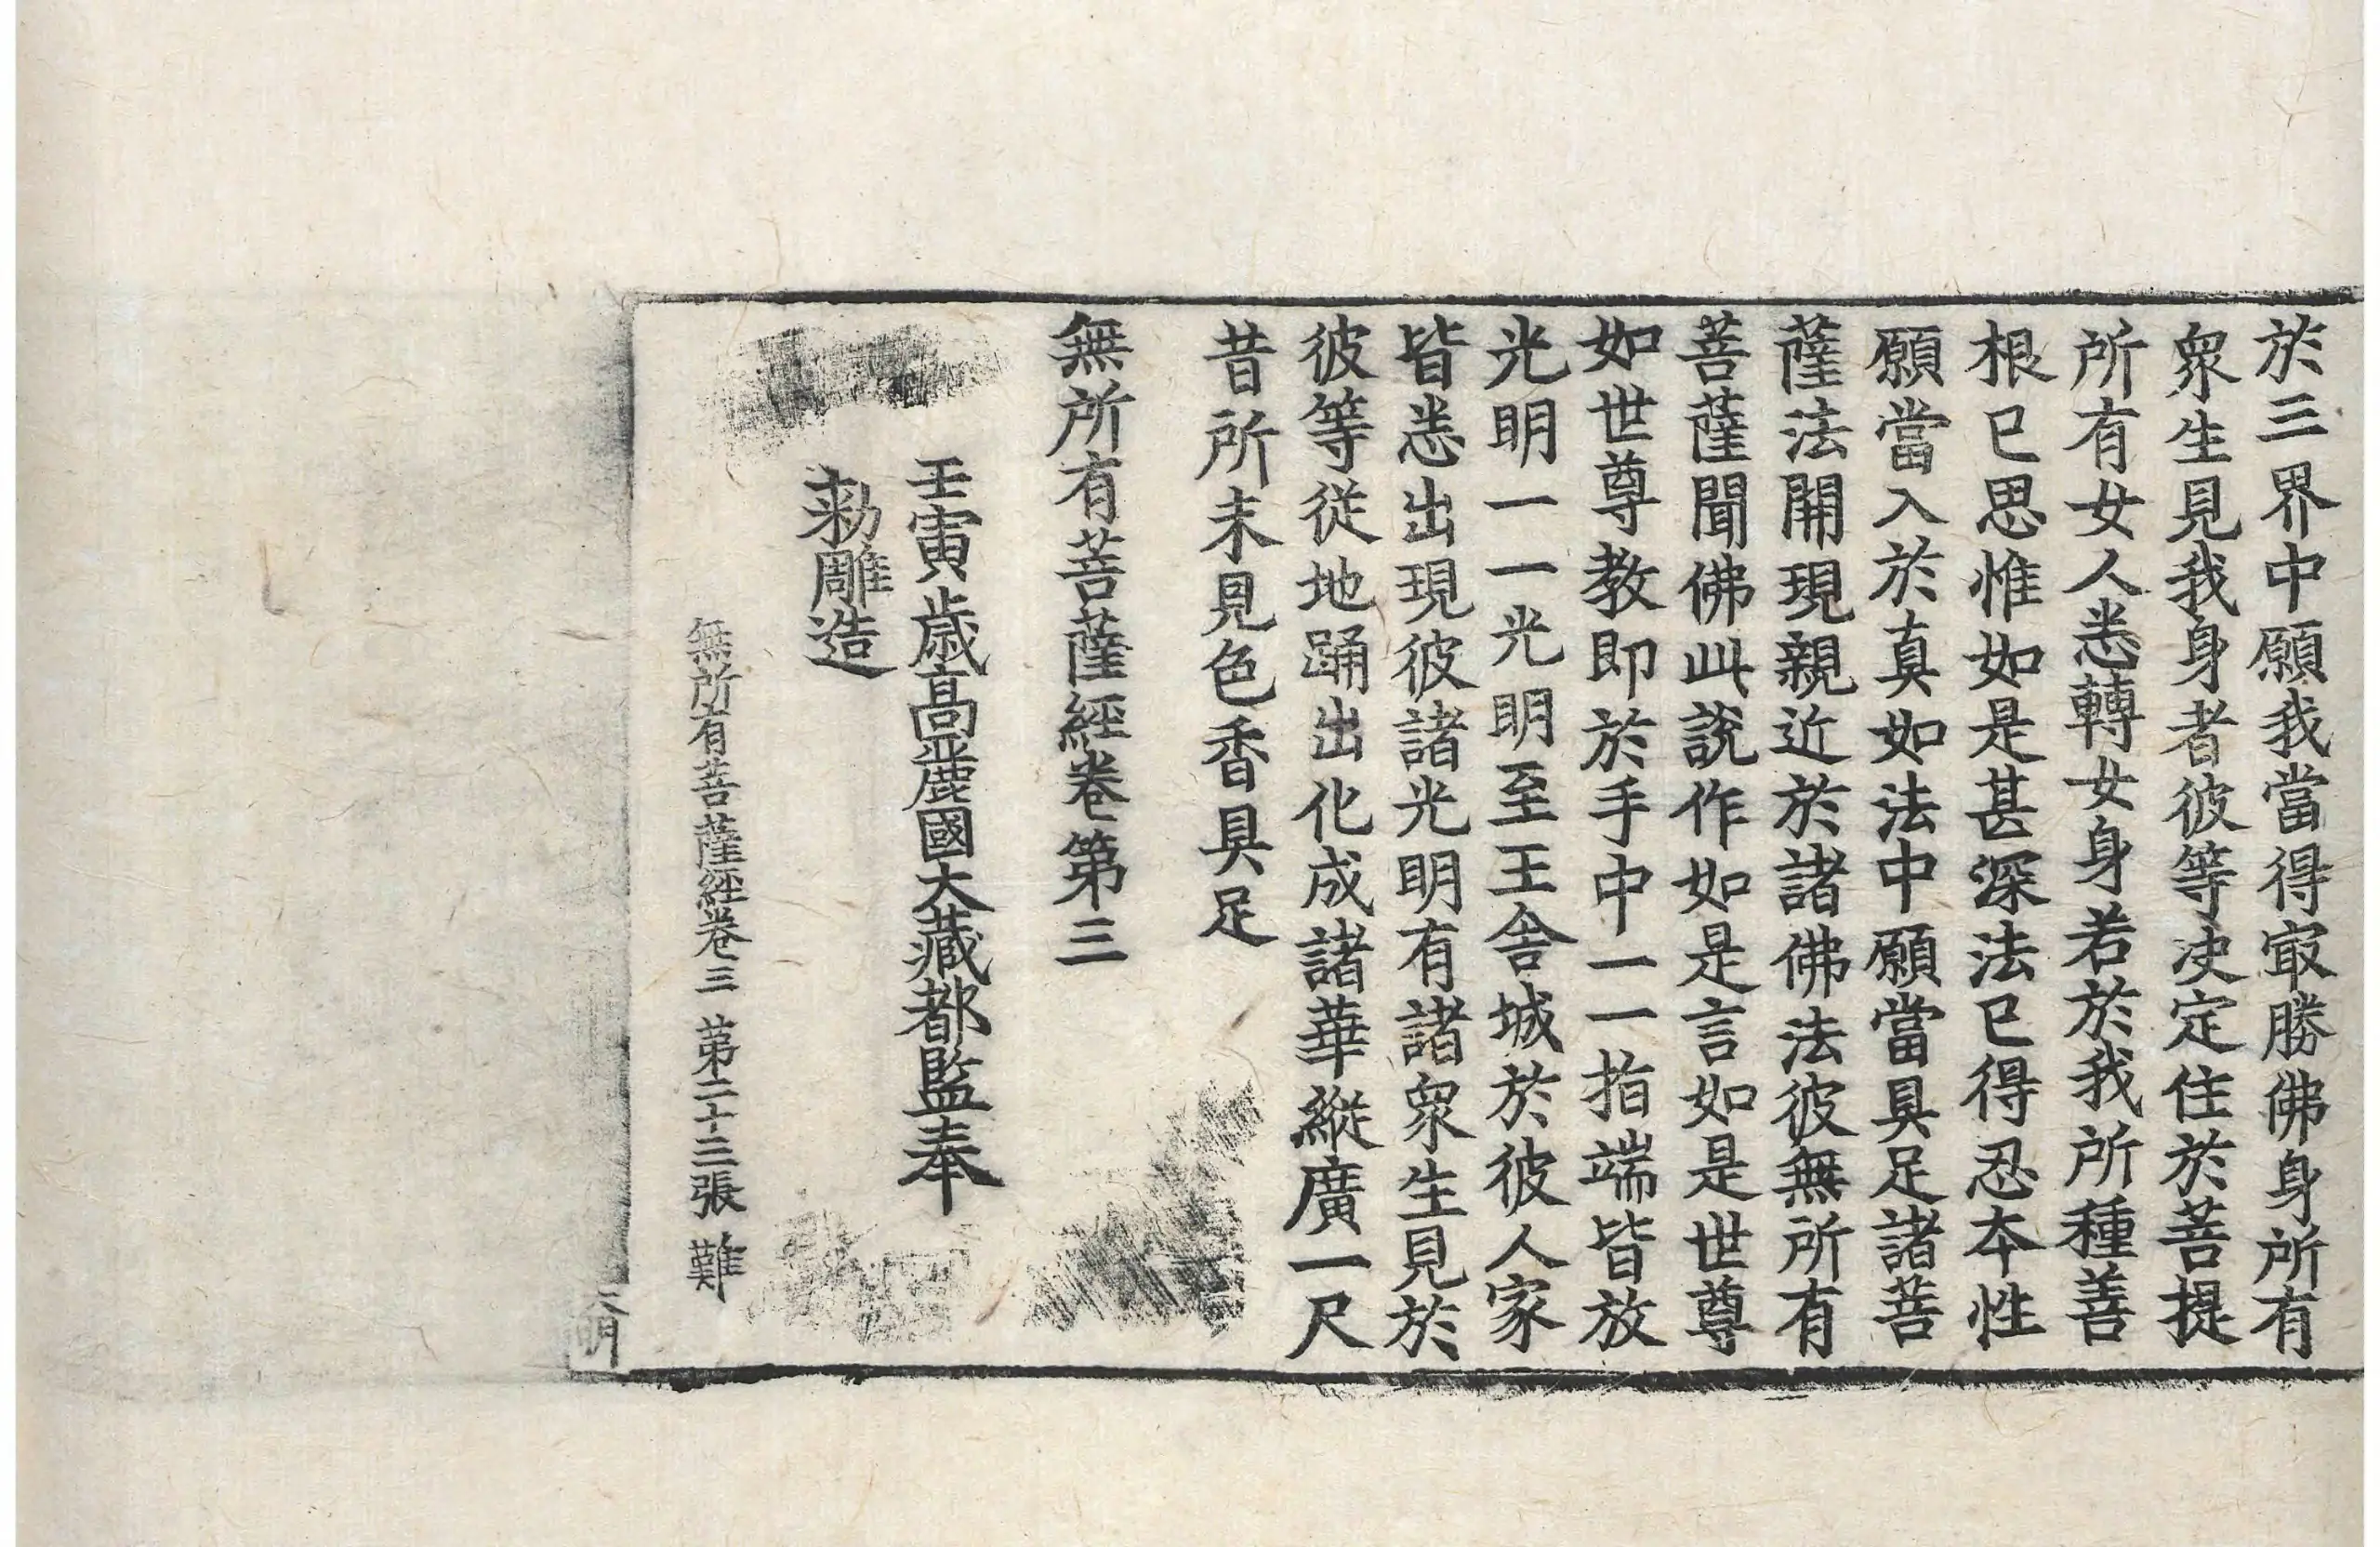 於三界中願我當得㝡勝佛身所有
衆生見我身者彼等決定住於菩提
所有女人悉轉女身若於我所種善
根已思惟如是甚深法已得忍本性
願當入於真如法中願當具足諸菩
薩法開現親近於諸佛法彼無所有
菩薩聞佛此說作如是言如是世尊
如世尊教即於手中一一指端皆放
光明一一光明至王舍城於彼人家
皆悉出現彼諸光明有諸衆生見於
彼等從地踊出化成諸華縱廣一尺
昔所未見色香具足
無所有菩薩經卷第三
壬寅歲高麗國大藏都監奉
勅雕造
無所有菩薩經卷三 第二十三張 難